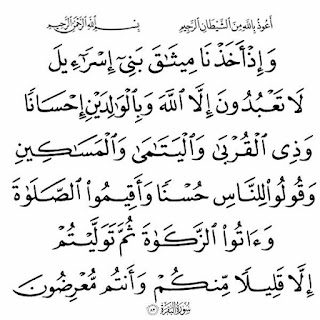 أعوذ بالله من الشيطان الرجيم بسم الله الرحمن الرحيم
وَإِذْ أَخَذْنَا مِيثَٰقَ بَنِىٓ إِسْرَٰٓءِيلَ
لَا تَعْبُدُونَ إِلَّا ٱللَّهَ وَبِٱلْوَٰلِدَيْنِ إِحْسَانًا
وَذِى ٱلْقُرْبَىٰ وَٱلْيَتَٰمَىٰ وَٱلْمَسَٰكِينِ
وَقُولُوا۟ لِلنَّاسِ حُسْنًا وَأَقِيمُوا۟ ٱلصَّلَوٰةَ
وَءَاتُوا۟ ٱلزَّكَوٰةَ ثُمَّ تَوَلَّيْتُمْ
إِلَّا قَلِيلًا مِّنكُمْ وَأَنتُم مُّعْرِضُونَ
سورة البقرة ٨٣